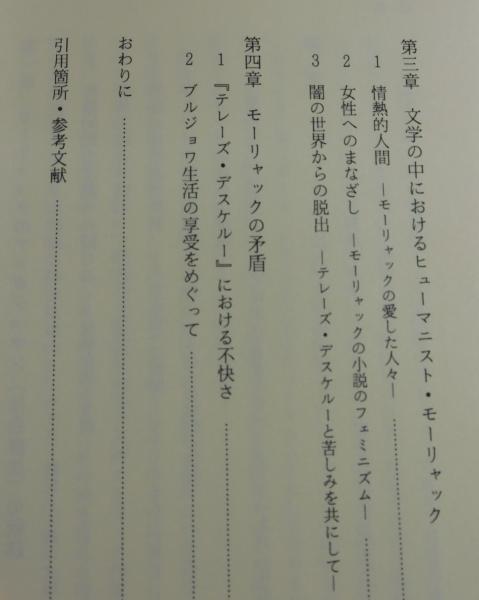 第三章 文学の中におけるヒューマニスト・モーリャック
1 情熱的人間 ―モーリャックの愛した人々―
2 女性へのまなざし ―モーリャックの小説のフェミニズム―
3 闇の世界からの脱出 ―テレーズ・デスケルーと苦しみを共にして―
第四章 モーリャックの矛盾
1 『テレーズ・デスケルー』における不快さ
2 ブルジョワ生活の享受をめぐって
おわりに
引用箇所・参考文献